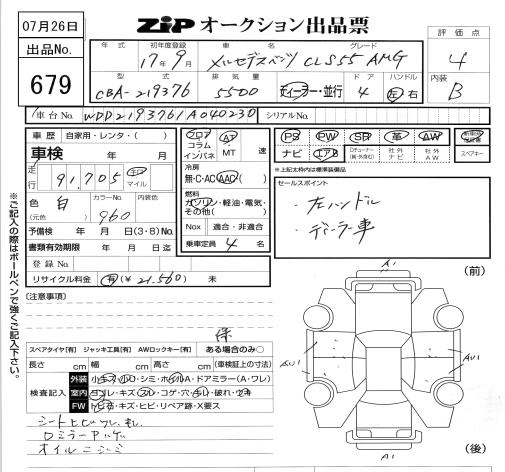 07月26日
ZIP オークション出品票
出品No.
679
評価点
4
内装
B
年式 初年度登録 車名 グレード
17年9月 メルセデスベンツ CLS55 AMG
型式 排気量 ドア ハンドル
CBA-219376 5500 ディーラー・並行 4 左 右
車台No. WDD2193761A040230 シリアルNo.
車歴 自家用・レンタ・( )
車検 年 月
走行 91,705 km マイル
色 白 カラーNo. 960
(元色)
予備検 年 月 日(3・8)No.
書類有効期限 年 月 日迄
登録No.
リサイクル料金 有(¥ 21,560) 未
フロア コラム インパネ AT ・MT 速
冷房
無・C・AC・AAC( )
燃料
ガソリン・軽油・電気・その他( )
Nox 適合・非適合
乗車定員 4 名
PS PW SR 革 AW
ナビ エアB 社外ナビ 社外AW スペアキー
※上記太枠内は標準装備品
セールスポイント
・左ハンドル
・ディーラー車
※ご記入の際はボールペンで強くご記入下さい。
(注意事項)
保
スペアタイヤ[有] ジャッキ工具[有] AWロックキー[有] ある場合のみ○
長さ cm 幅 cm 高さ cm (車検証上の寸法)
検査記入
外装 小キズ・凹・シミ・ホイルA・ドアミラー(A・ワレ)
室内 ヨゴレ・キズ・スレ・コゲ・穴・キレ・破れ・ウキ
FW トビ石・キズ・ヒビ・リペア跡・X要ス
シートヒビワレ、
ロミラーアルゲ
オイルニジミ
(前)
A1
AU1
AU1
A1
(後)